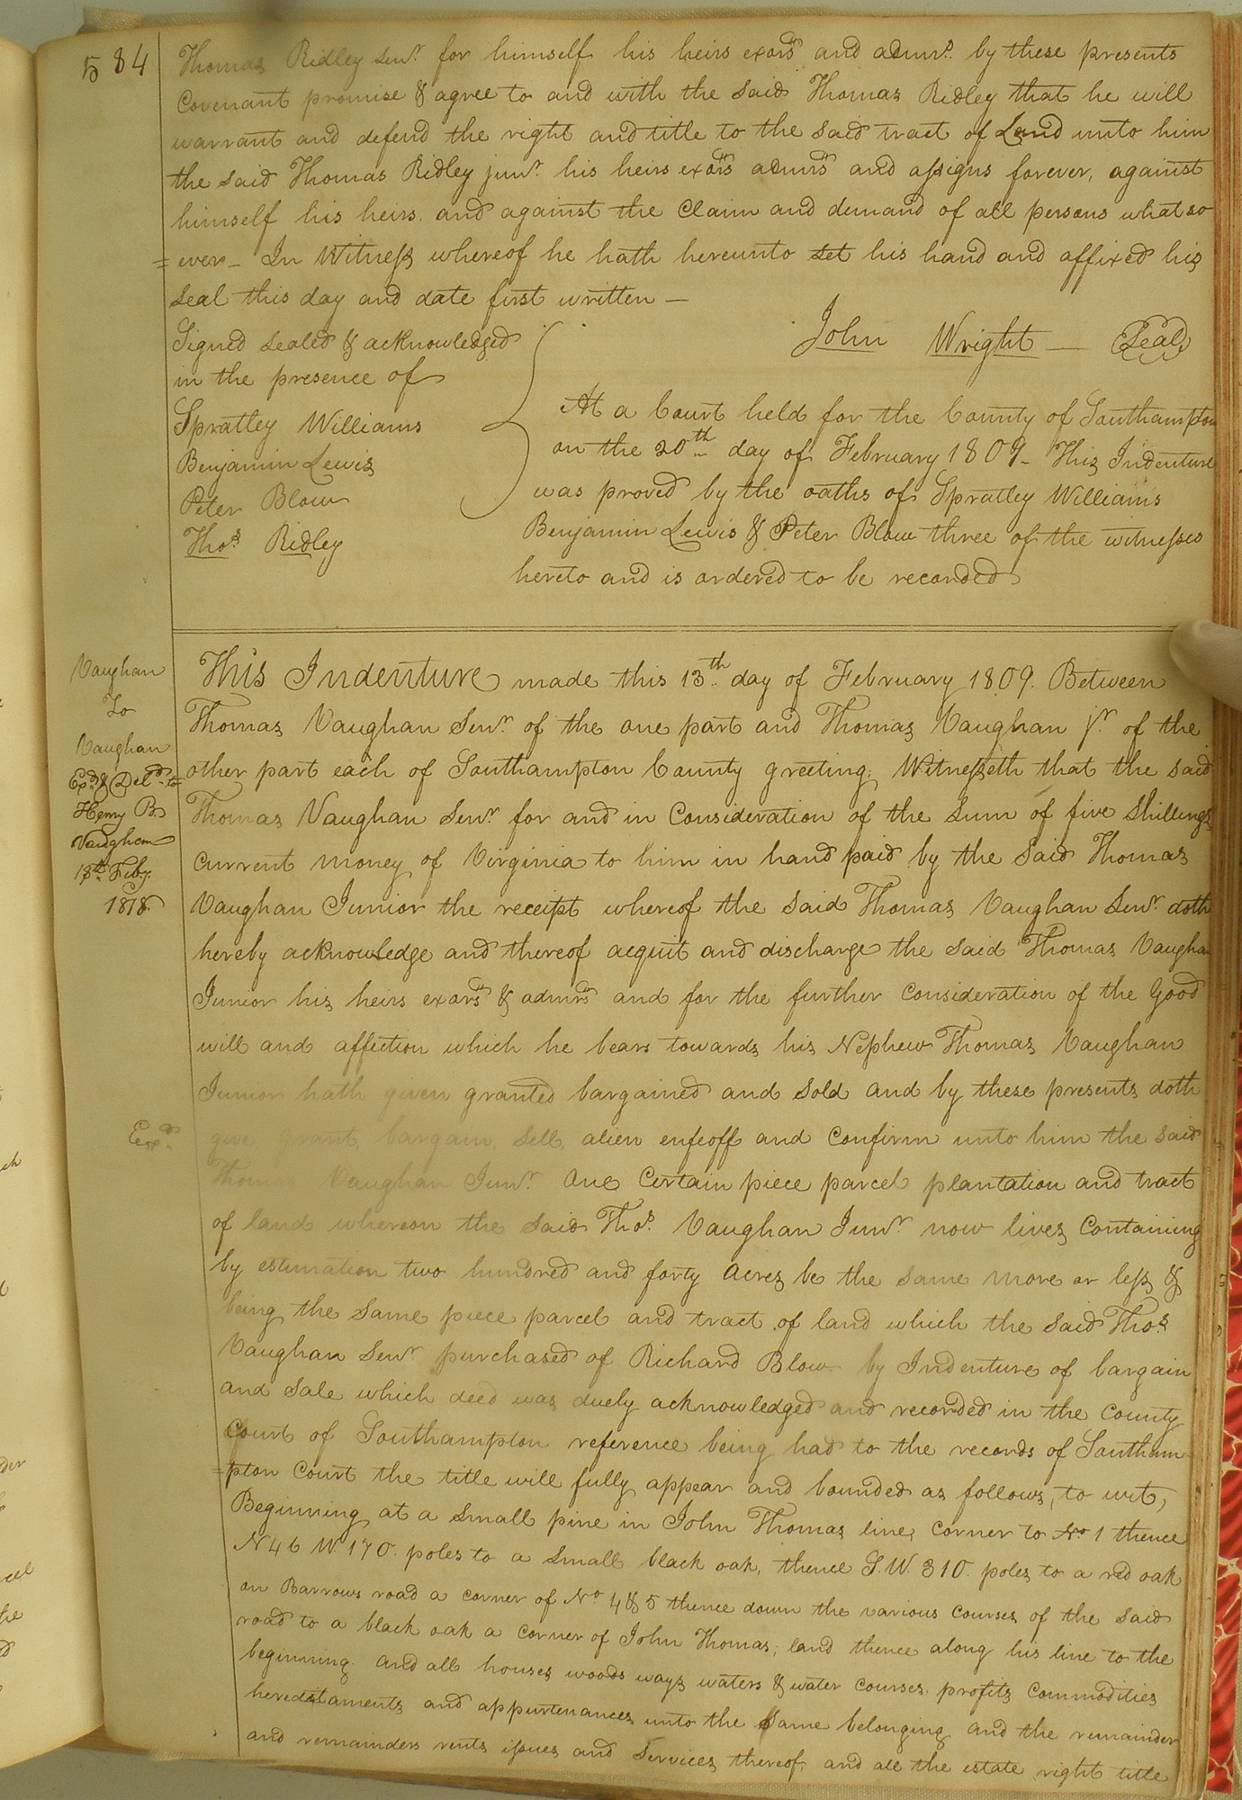 584
Thomas Ridley Senr. for himself his heirs exors and admrs. by these presents
Covenant promise & agree to and with the said Thomas Ridley that he will
warrant and defend the right and title to the said tract of Land unto him
the said Thomas Ridley junr. his heirs exors admrs and assigns forever, against
himself his heirs and against the Claim and demand of all persons what so
=ever - In Witness whereof he hath hereunto set his hand and affixed his
seal this day and date first written -
Signed sealed & acknowledged
in the presence of
Spratley Williams
Benjamin Lewis
Peter Blow
Thos. Ridley
John Wright - Seal
At a Court held for the County of Southampton
on the 20th day of February 1809 - This Indenture
was proved by the oaths of Spratley Williams
Benjamin Lewis & Peter Blow three of the witnesses
hereto and is ordered to be recorded
Vaughan
To
Vaughan
Exd. & Deld. to
Henry B.
Vaughan
18th Feby.
1818.
Exd.
This Indenture made this 13th day of February 1809. Between
Thomas Vaughan Senr. of the one part and Thomas Vaughan jr. of the
other part each of Southampton County greeting; Witnesseth that the said
Thomas Vaughan Senr. for and in Consideration of the sum of five shillings
current money of Virginia to him in hand paid by the said Thomas
Vaughan Junior the receipt whereof the said Thomas Vaughan Senr. doth
hereby acknowledge and thereof acquit and discharge the said Thomas Vaughan
Junior his heirs exors & admrs and for the further consideration of the Good
will and affection which he bears towards his Nephew Thomas Vaughan
Junior hath given granted bargained and sold and by these presents doth
give grant bargain sell alien enfeoff and confirm unto him the said
Thomas Vaughan Junr. One Certain piece parcel plantation and tract
of land whereon the said Thos. Vaughan Junr now lives Containing
by estimation two hundred and forty acres be the same more or less &
being the same piece parcel and tract of land which the said Thos.
Vaughan Senr purchased of Richard Blow by Indenture of bargain
and sale which deed was duely acknowledged and recorded in the County
Court of Southampton reference being had to the records of Southam
=pton Court the title will fully appear and bounded as follows, to wit,
Beginning at a small pine in John Thomas line, corner to No 1 thence
N 46 W 170. poles to a small black oak, thence S.W. 310. poles to a red oak
on Barrows road a corner of No 4 & 5 thence down the various courses of the said
road to a black oak a corner of John Thomas, land thence along his line to the
beginning. and all houses woods ways waters & water courses. profits commodities
heredataments and appurtenances unto the same belonging and the remainder
and remainders rents issues and services thereof, and all the estate right title